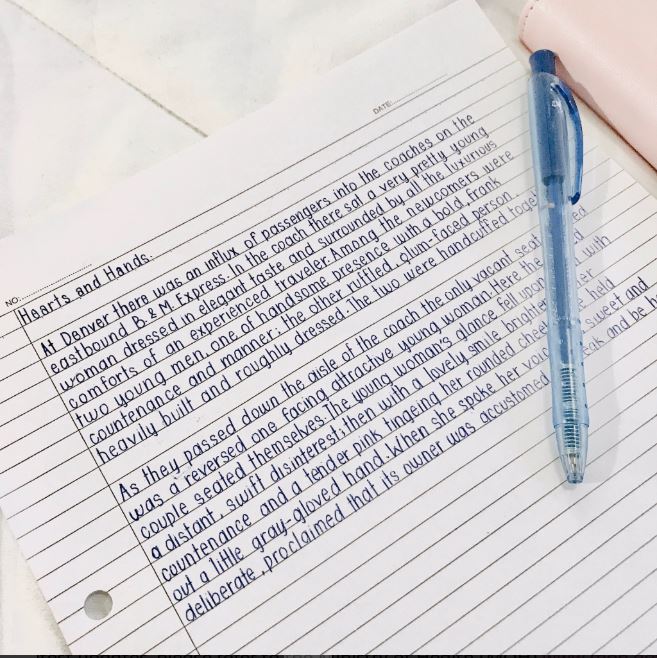 DATE:
NO:
Hearts and Hands:
At Denver there was an influx of passengers into the coaches on the
eastbound B. & M. Express. In the coach there sat a very pretty young
woman dressed in elegant taste and surrounded by all the luxurious
comforts of an experienced traveler. Among the newcomers were
two young men, one of handsome presence with a bold, frank
countenance and manner; the other ruffled, glum-faced person,
heavily built and roughly dressed. The two were handcuffed
As they passed down the aisle of the coach the only vacant seat
was a reversed one facing attractive young woman. Here the
couple seated themselves. The young woman's glance fell upon with
a distant, swift disinterest; then with a lovely smile
countenance and a tender pink tingeing her rounded held
out a little gray-gloved hand. When she spoke her sweet and
deliberate, proclaimed that its owner was accustomed and be